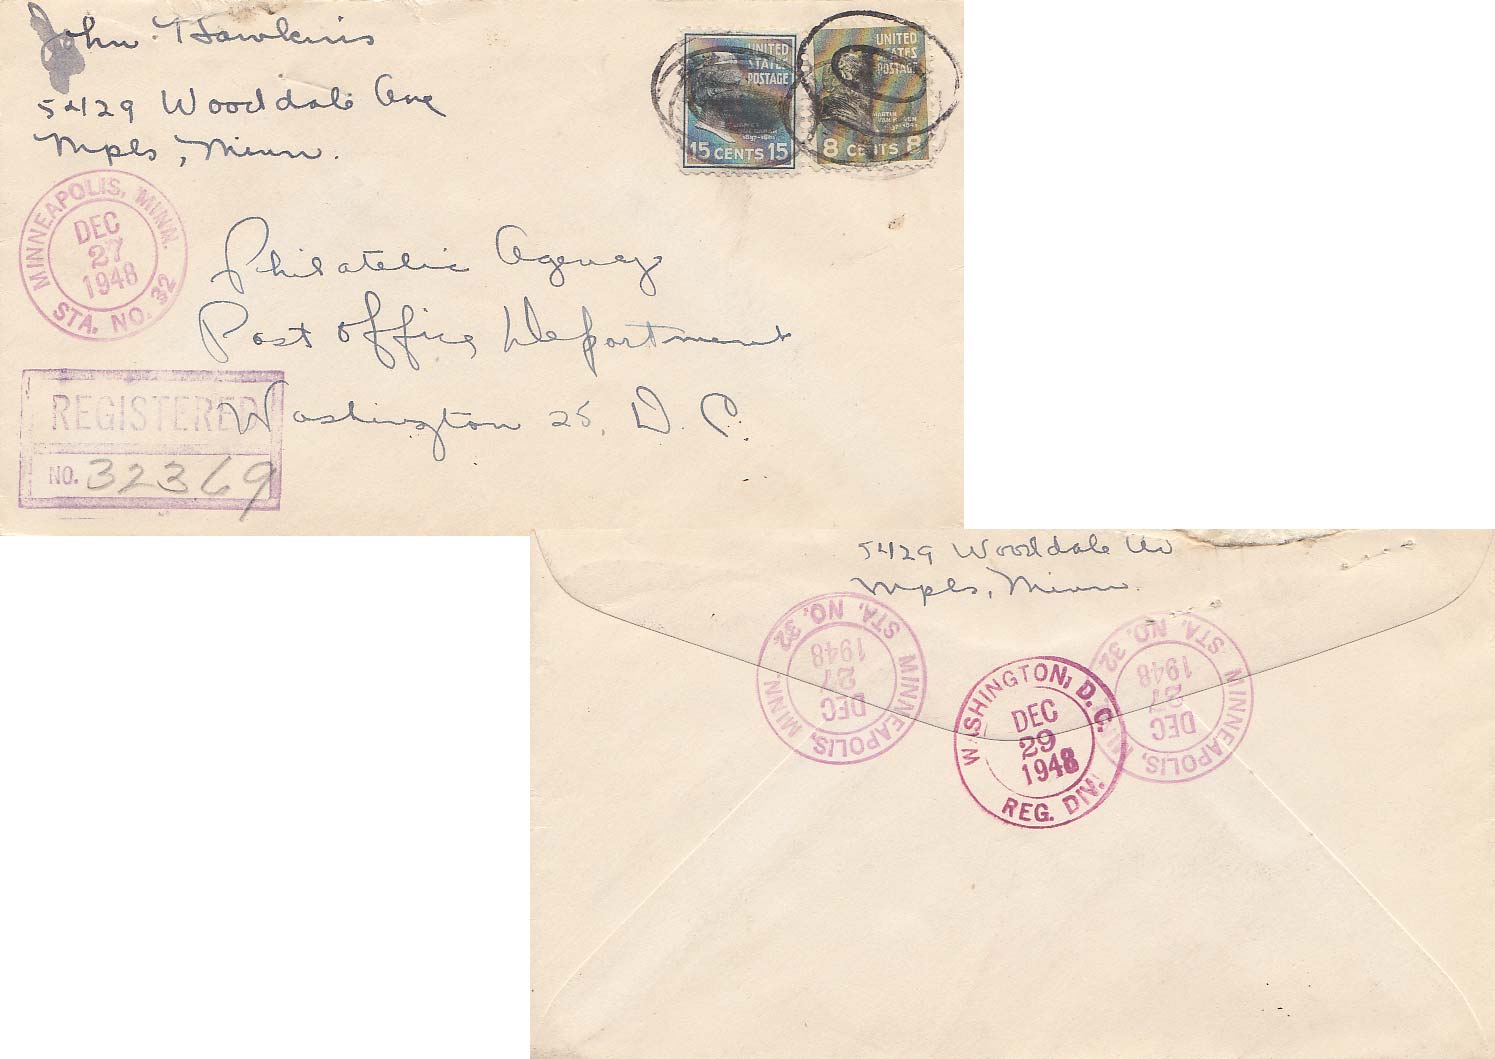 John Hawkins
5429 Wooddale Ave
Mpls, Minn.
UNITED
STATES
POSTAGE
15 CENTS 15
UNITED
STATES
POSTAGE
MARTIN
VAN BUREN
8 CENTS 8
MINNEAPOLIS, MINN.
DEC
27
1948
STA. NO. 32
Philatelic Agency
Post Office Department
Washington 25, D. C.
REGISTERED
NO. 32369
5429 Wooddale Av
Mpls, Minn.
MINNEAPOLIS, MINN.
DEC
27
1948
STA. NO. 32
WASHINGTON, D.C.
DEC
29
1948
REG. DIV.
MINNEAPOLIS, MINN.
DEC
27
1948
STA. NO. 32